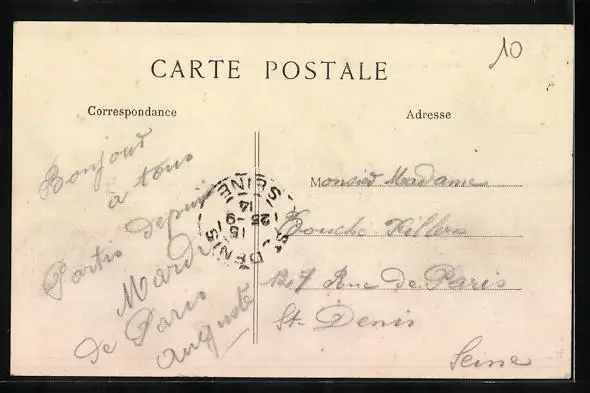 10
CARTE POSTALE
Correspondance
Adresse
Bonjour
à tous
Partis depuis
Mardi
de Paris
Auguste
ST DENIS
SEINE
15 15
25 -9
14
Monsieur Madame
127 Rue de Paris
St. Denis
Seine